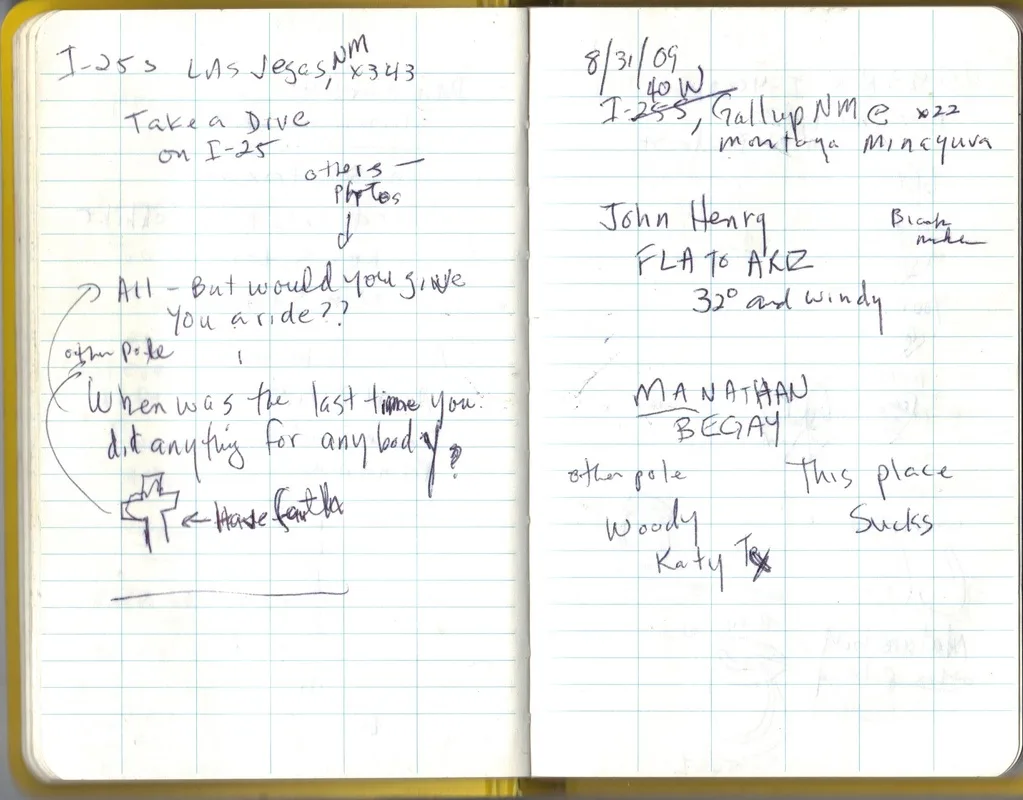 I-25S Las Vegas, NM x343
Take a Dive
on I-25
others –
Photos
All – But would you give
you a ride??
other pole
When was the last time you
did anything for anybody?
← Have faith
8/31/09
40 W
I-25S, Gallup NM @ x22
montoya
John Henry
FLA TO ARIZ
32° and windy
Black
MANATHAN
BEGAY
other pole
This place
Sucks
Woody
Katy Tx